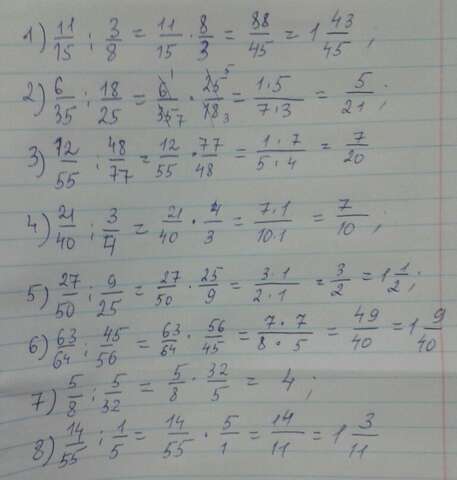 1) 11/15 : 3/8 = 11/15 · 8/3 = 88/45 = 1 43/45 ;
2) 6/35 : 18/25 = 6¹/35₇ · 25⁵/18₃ = 1·5/7·3 = 5/21 ;
3) 12/55 : 48/77 = 12/55 · 77/48 = 1·7/5·4 = 7/20
4) 21/40 : 3/4 = 21/40 · 4/3 = 7·1/10·1 = 7/10 ;
5) 27/50 : 9/25 = 27/50 · 25/9 = 3·1/2·1 = 3/2 = 1 1/2 ;
6) 63/64 : 45/56 = 63/64 · 56/45 = 7·7/8·5 = 49/40 = 1 9/40
7) 5/8 : 5/32 = 5/8 · 32/5 = 4 ;
8) 14/55 : 1/5 = 14/55 · 5/1 = 14/11 = 1 3/11